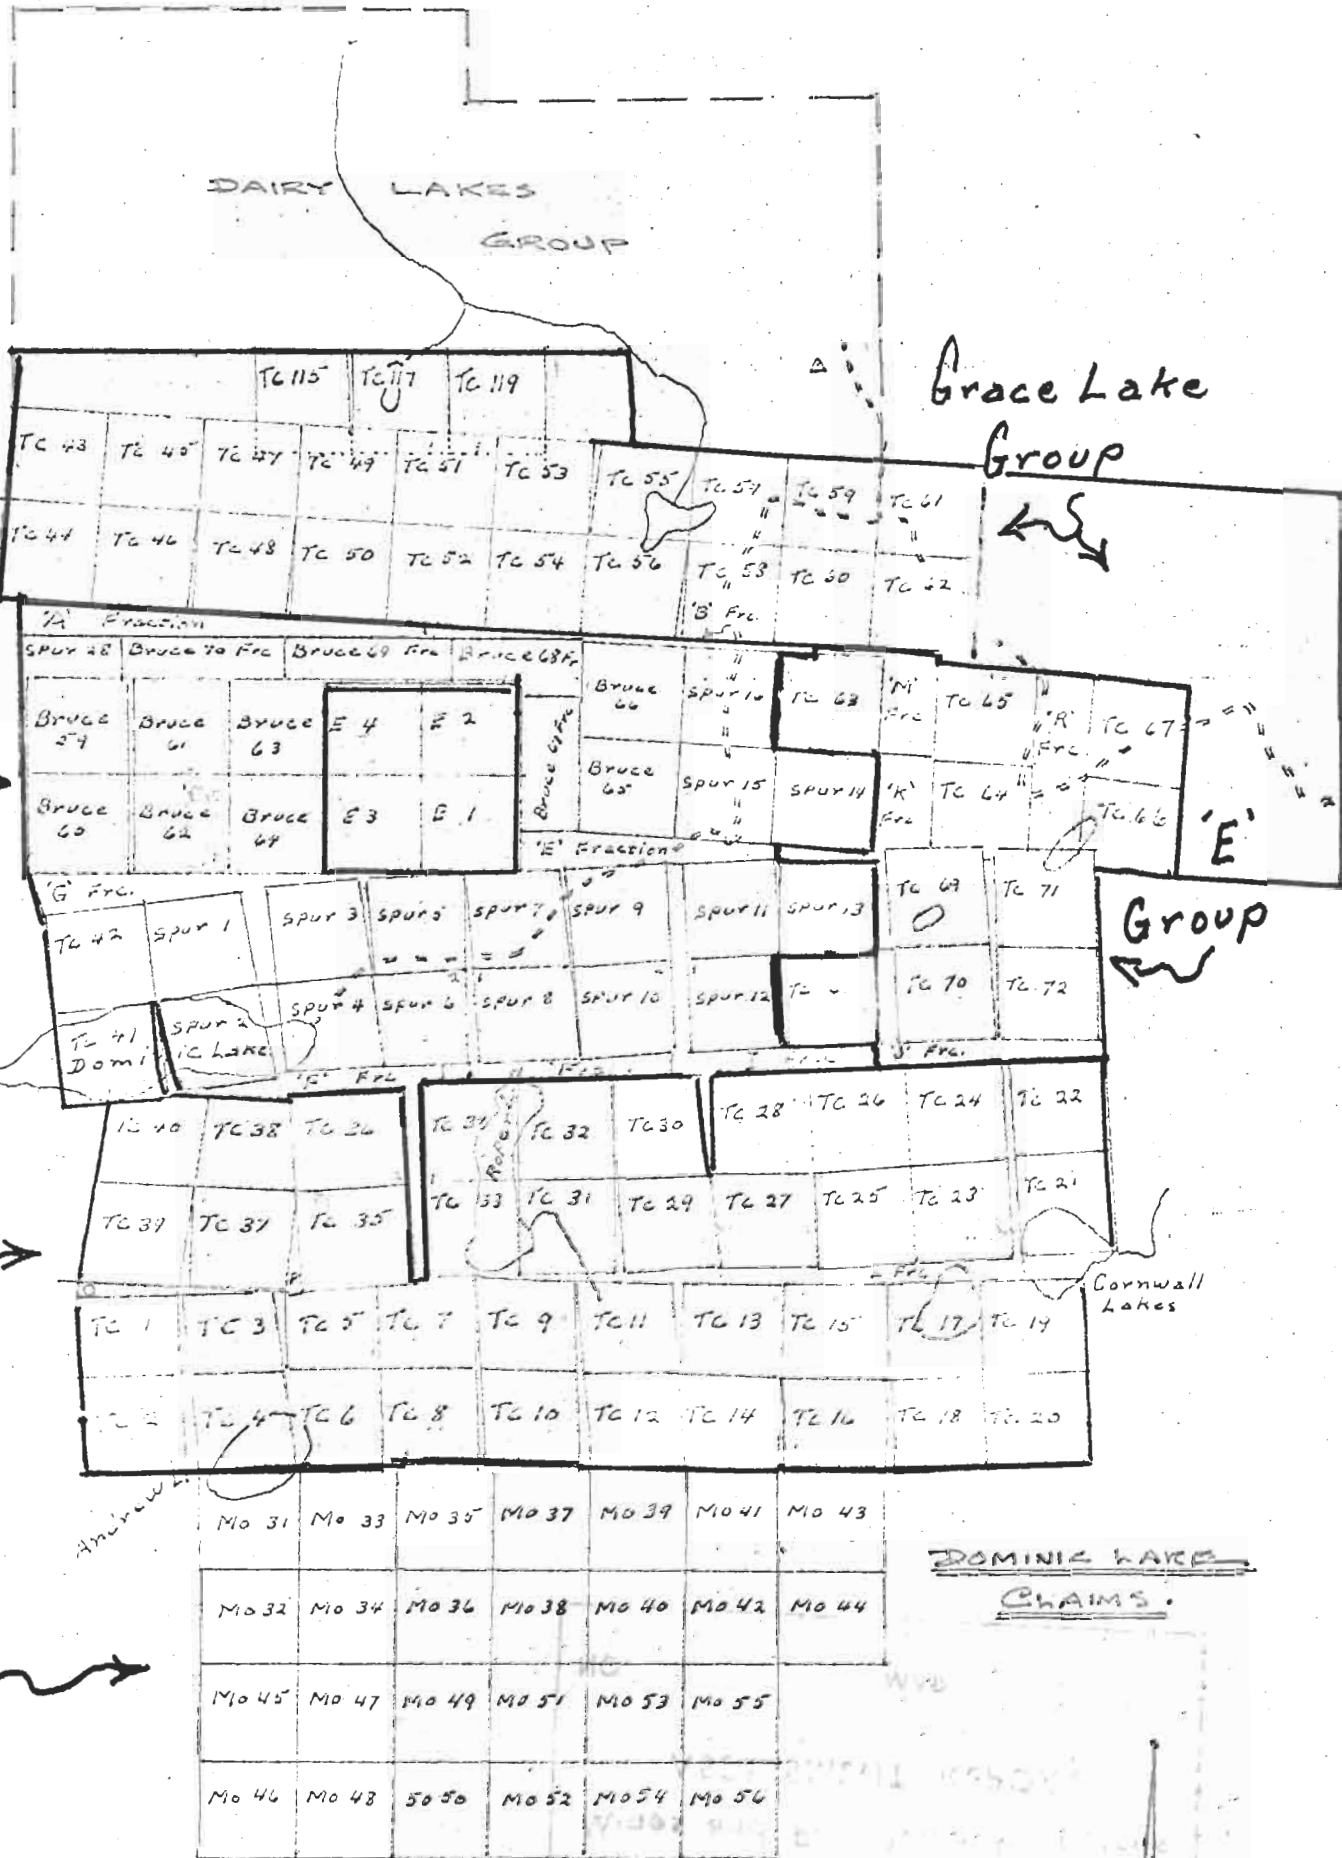 DAIRY LAKES
GROUP
Grace Lake
Group
TC 115 TC 117 TC 119
TC 43 TC 45 TC 47 TC 49 TC 51 TC 53 TC 55 TC 57 TC 59 TC 61
TC 44 TC 46 TC 48 TC 50 TC 52 TC 54 TC 56 TC 58 TC 60 TC 62
'A' Fraction 'B' Frc.
Spur 28 Bruce 70 Frc Bruce 69 Frc Bruce 68 Fr
Bruce 59 Bruce 61 Bruce 63 E 4 E 2 Bruce 67 Frc Bruce 66 Spur 16 TC 63 'M' Frc TC 65 'R' Frc. TC 67
Bruce 60 Bruce 62 Bruce 64 E 3 E 1 Bruce 65 Spur 15 Spur 14 'K' Frc TC 64 TC 66
'E'
Group
'E' Fraction
'G' Frc.
TC 42 Spur 1 Spur 3 Spur 5 Spur 7 Spur 9 Spur 11 Spur 13 TC 69 TC 71
TC 41 Spur 2 Spur 4 Spur 6 Spur 8 Spur 10 Spur 12 TC 70 TC 72
Domi ic Lake
'F' Frc Frc 'J' Frc.
TC 40 TC 38 TC 36 TC 32 TC 30 TC 28 TC 26 TC 24 TC 22
TC 39 TC 37 TC 35 TC 33 TC 31 TC 29 TC 27 TC 25 TC 23 TC 21
Frc
Cornwall
Lakes
TC 1 TC 3 TC 5 TC 7 TC 9 TC 11 TC 13 TC 15 TC 17 TC 19
TC 2 TC 4 TC 6 TC 8 TC 10 TC 12 TC 14 TC 16 TC 18 TC 20
Andrew L.
Mo 31 Mo 33 Mo 35 Mo 37 Mo 39 Mo 41 Mo 43
Mo 32 Mo 34 Mo 36 Mo 38 Mo 40 Mo 42 Mo 44
Mo 45 Mo 47 Mo 49 Mo 51 Mo 53 Mo 55
Mo 46 Mo 48 50 50 Mo 52 Mo 54 Mo 56
DOMINIC LAKE
CLAIMS.